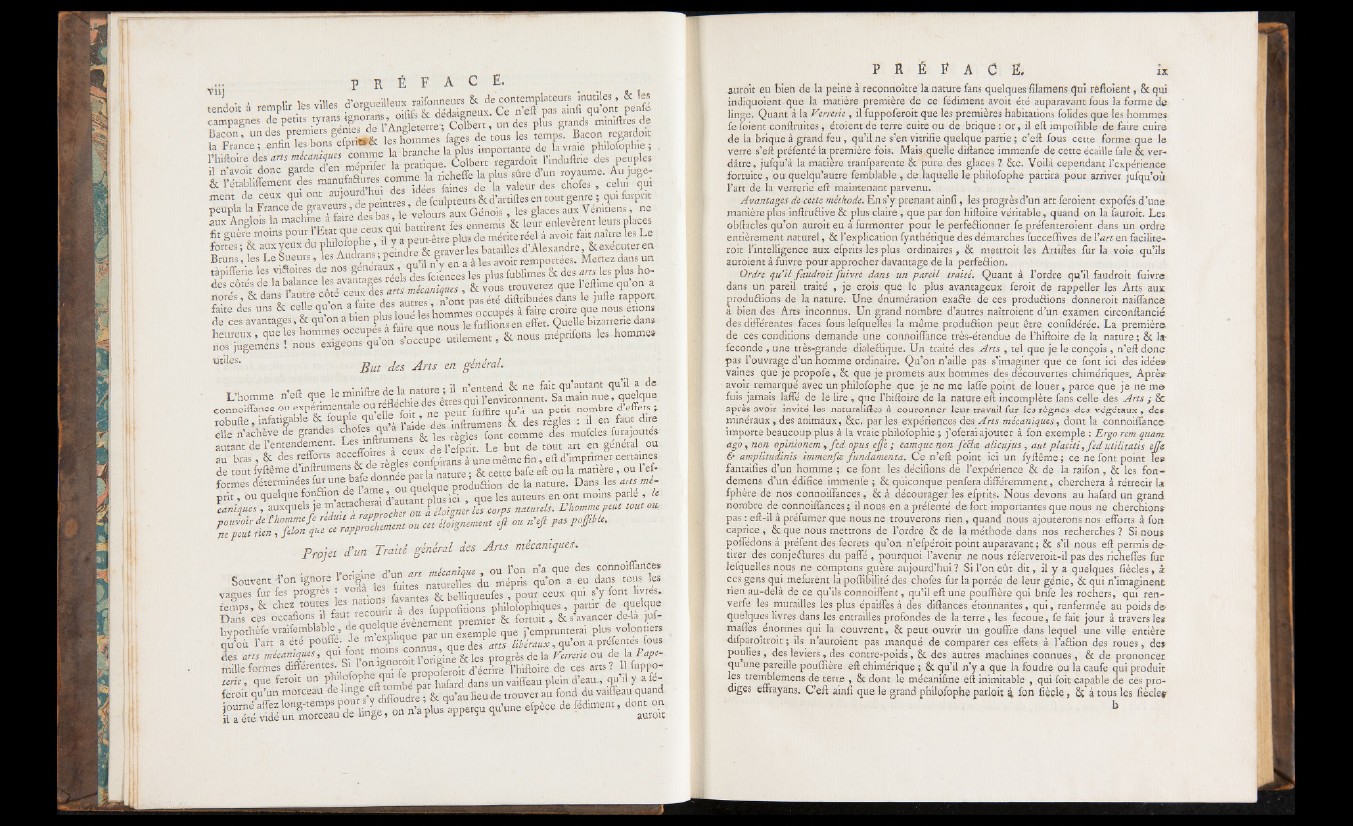 viij
PRÉFACE.
tendoit à remplir les villes d'orgueilleux raisonneurs & de contemplateurs inutiles, & les
campagnes de petits tyrans ignorans, oisifs & dédaigneux. Ce n'est pas ainsi qu'ont pensé
Bacon, un des premiers génies de l'Angleterre; Colbert, un des plus grands ministres de
la France; enfin les bons esprits & les hommes sages de tous les temps. Bacon regardoit
l'histoire des arts mécaniques comme la branche la plus importante de la vraie philosophie;
il n'avoit donc garde d'en mépriser la pratique. Colbert regardoit l'industrie des peuples
& l'établissement des manufactures comme la richesse la plus sûre d'un royaume. Au juge-
ment de ceux qui ont aujourd'hui des idées saines de la valeur des choses, celui qui
peupla la France de graveurs, de peintres, de sculpteurs & d'artistes en tout genre; qui surprit
aux Anglois la machine à faire des bas, le velours aux Génois, les glaces aux Vénitiens, ne
fit guère moins pour l'Etat que ceux qui battirent ses ennemis & leur enlevèrent leurs places
fortes; & aux yeux du philosophe, il y a peut-être plus de mérite réel à avoir fait naître les Le
Bruns, les Le Sueurs, les Audrans; peindre & graver les batailles d'Alexandre, & exécuter en
tapisserie les victoires de nos généraux, qu'il n'y en a à les avoir remportées. Mettez dans un
des côtés de la balance les avantages réels des sciences les plus sublimes & des arts les plus ho-
norés, & dans l'autre côté ceux des arts mécaniques, & vous trouverez que l'estime qu'on a
faite des uns & celle qu'on a faite des autres, n'ont pas été distribuées dans le juste rapport
de ces avantages, & qu'on a bien plus loué les hommes occupés à faire croire que nous étions
heureux, que les hommes occupés à faire que nous le fussions en effet. Quelle bizarrerie dans
nos jugemens! nous exigeons qu'on s'occupe utilement, & nous méprisons les hommes
utiles.
But des Arts en général.
L'homme n'est que le ministre de la nature; il n'entend & ne fait qu'autant qu'il a de
connoissance ou expérimentale ou réfléchie des êtres qui l'environnent. Sa main nue, quelque
robuste, infatigable & souple qu'elle soit, ne peut suffire qu'à un petit nombre d'effets;
elle n'achève de grandes choses qu'à l'aide des instrumens & des règles: il en faut dire
autant de l'entendement. Les instrumens & les règles sont comme des muscles surajoutés
au bras, & des ressorts accessoires à ceux de l'esprit. Le but de tout art en général ou
de tout système d'instrumens & de règles conspirans à une même fin, est d'imprimer certaines
formes déterminées sur une base donnée par la nature; & cette base est ou la matière, ou l'es-
prit, ou quelque fonction de l'ame, ou quelque production de la nature. Dans les arts mé-
caniques, auxquels je m'attacherai d'autant plus ici, que les auteurs en ont moins parlé, le
pouvoir de l'homme se réduit à rapprocher ou à éloigner les corps naturels. L'homme peut tout ou
ne peut rien, selon que ce rapprochement ou cet éloignement est ou n'est pas possible.
Projet d'un Traité général des Arts mécaniques.
Souvent l'on ignore l'origine d'un art mécanique, ou l'on n'a que des connoissances
vagues sur ses progrès: voilà les suites naturelles du mépris qu'on a eu dans tous les
temps, & chez toutes les nations savantes & belliqueuses, pour ceux qui s'y sont livrés.
Dans ces occasions il faut recourir à des suppositions philosophiques, partir de quelque
hypothèse vraisemblable, de quelque évènement premier & fortuit, & s'avancer de-là jus-
qu'où l'art a été poussé. Je m'explique par un exemple que j'emprunterai plus volontiers
des arts mécaniques, qui sont moins connus, que des arts libéraux, qu'on a présentés sous
mille formes différentes. Si l'on ignoroit l'origine & les progrès de la Verrerie ou de la Pape-
terie, que feroit un philosophe qui se proposeroit d'écrire l'histoire de ces arts? Il suppo-
seroit qu'un morceau de linge est tombé par hasard dans un vaisseau plein d'eau, qu'il y a sé-
journé assez long-temps pour s'y dissoudre; & qu'au lieu de trouver au fond du vaisseau quand
il a été vidé un morceau de linge, on n'a plus apperçu qu'une espèce de sédiment, dont on
auroit
PRÉFACE.
ix
auroit eu bien de la peine à reconnoître la nature sans quelques filamens qui restoient, & qui
indiquoient que la matière première de ce sédiment avoit été auparavant sous la forme de
linge. Quant à la Verrerie, il supposeroit que les premières habitations solides que les hommes
se soient construites, étoient de terre cuite ou de brique: or, il est impossible de faire cuire
de la brique à grand feu, qu'il ne s'en vitrifie quelque partie; c'est sous cette forme que le
verre s'est présenté la première fois. Mais quelle distance immense de cette écaille sale & ver-
dâtre, jusqu'à la matière transparente & pure des glaces? &c. Voilà cependant l'expérience
fortuite, ou quelqu'autre semblable, de laquelle le philosophe partira pour arriver jusqu'où
l'art de la verrerie est maintenant parvenu.
Avantages de cette méthode. En s'y prenant ainsi, les progrès d'un art seroient exposés d'une
manière plus instructive & plus claire, que par son histoire véritable, quand on la sauroit. Les
obstacles qu'on auroit eu à surmonter pour le perfectionner se présenteroient dans un ordre
entièrement naturel, & l'explication synthétique des démarches successives de l'art en facilite-
roit l'intelligence aux esprits les plus ordinaires, & mettroit les Artistes sur la voie qu'ils
auroient à suivre pour approcher davantage de la perfection.
Ordre qu'il faudroit suivre dans un pareil traité. Quant à l'ordre qu'il faudroit suivre
dans un pareil traité, je crois que le plus avantageux seroit de rappeller les Arts aux
productions de la nature. Une énumération exacte de ces productions donneroit naissance
à bien des Arts inconnus. Un grand nombre d'autres naîtroient d'un examen circonstancié
des différentes faces sous lesquelles la même production peut être considérée. La première
de ces conditions demande une connoissance très-étendue de l'histoire de la nature; & la
seconde, une très-grande dialectique. Un traité des Arts, tel que je le conçois, n'est donc
pas l'ouvrage d'un homme ordinaire. Qu'on n'aille pas s'imaginer que ce sont ici des idées
vaines que je propose, & que je promets aux hommes des découvertes chimériques. Après
avoir remarqué avec un philosophe que je ne me lasse point de louer, parce que je ne me
suis jamais lassé de le lire, que l'histoire de la nature est incomplète sans celle des Arts; &
après avoir invité les naturalistes à couronner leur travail sur les règnes des végétaux, des
minéraux, des animaux, &c. par les expériences des Arts mécaniques, dont la connoissance
importe beaucoup plus à la vraie philosophie; j'oserai ajouter à son exemple: Ergo rem quam
ago, non opinionem, sed opus esse; eamque non sectæ alicujus, aut placiti, sed utilitatis esse
& amplitudinis immensæ fundamenta. Ce n'est point ici un système; ce ne sont point les
fantaisies d'un homme; ce sont les décisions de l'expérience & de la raison, & les fon-
demens d'un édifice immense; & quiconque pensera différemment, cherchera à rétrecir la
sphère de nos connoissances, & à décourager les esprits. Nous devons au hasard un grand
nombre de connoissances; il nous en a présenté de fort importantes que nous ne cherchions
pas: est-il à présumer que nous ne trouverons rien, quand nous ajouterons nos efforts à son
caprice, & que nous mettrons de l'ordre & de la méthode dans nos recherches? Si nous
possédons à présent des secrets qu'on n'espéroit point auparavant; & s'il nous est permis de
tirer des conjectures du passé, pourquoi l'avenir ne nous réserveroit-il pas des richesses sur
lesquelles nous ne comptons guère aujourd'hui? Si l'on eût dit, il y a quelques siècles, à
ces gens qui mesurent la possibilité des choses sur la portée de leur génie, & qui n'imaginent
rien au-delà de ce qu'ils connoissent, qu'il est une poussière qui brise les rochers, qui ren-
verse les murailles les plus épaisses à des distances étonnantes, qui, renfermée au poids de
quelques livres dans les entrailles profondes de la terre, les secoue, se fait jour à travers les
masses énormes qui la couvrent, & peut ouvrir un gouffre dans lequel une ville entière
disparoîtroit; ils n'auroient pas manqué de comparer ces effets à l'action des roues, des
poulies, des leviers, des contre-poids, & des autres machines connues, & de prononcer
qu'une pareille poussière est chimérique; & qu'il n'y a que la foudre ou la cause qui produit
les tremblemens de terre, & dont le mécanisme est inimitable, qui soit capable de ces pro-
diges effrayans. C'est ainsi que le grand philosophe parloit à son siècle, & à tous les siècles
b